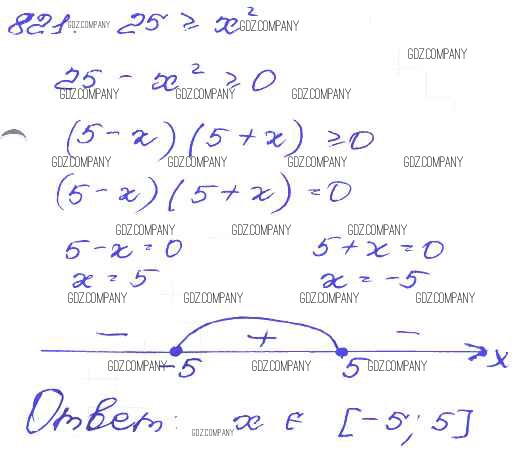 821. GDZ.COMPANY 25 ≥ x² GDZ.COMPANY
GDZ.COMPANY
25 - x² ≥ 0
GDZ.COMPANY GDZ.COMPANY GDZ.COMPANY
(5 - x)(5 + x) ≥ 0
GDZ.COMPANY GDZ.COMPANY GDZ.COMPANY GDZ.COMPANY
(5 - x)(5 + x) = 0
GDZ.COMPANY GDZ.COMPANY GDZ.COMPANY
5 - x = 0 5 + x = 0
x = 5 x = -5
GDZ.COMPANY GDZ.COMPANY GDZ.COMPANY GDZ.COMPANY
- + -
GDZ.COMPANY -5 GDZ.COMPANY 5 GDZ.COMPANY x
Ответ: GDZ.COMPANY x ∈ [-5; 5]